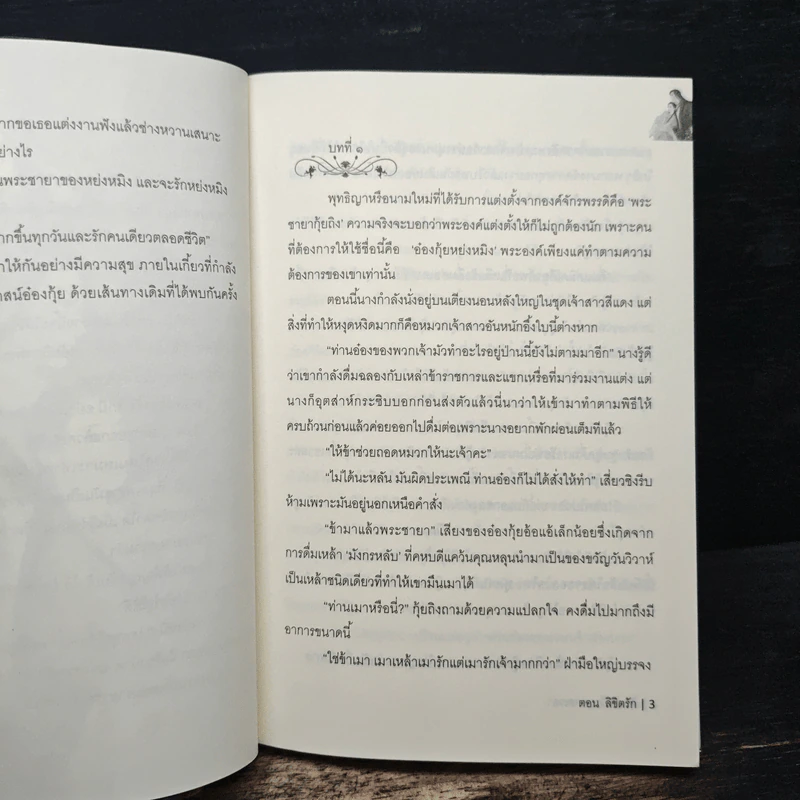 ากขอเธอแต่งงานฟังแล้วช่างหวานเสนาะ
ย่างไร
นพระชายาของหย่งหมิง และจะรักหย่งหมิง
ากขึ้นทุกวันและรักคนเดียวตลอดชีวิต"
าให้กันอย่างมีความสุข ภายในเกี้ยวที่กำลัง
าสน์อ๋องกุ้ย ด้วยเส้นทางเดิมที่ได้พบกันครั้ง
บทที่ ๑
พุทธิญาหรือนามใหม่ที่ได้รับการแต่งตั้งจากองค์จักรพรรดิคือ 'พระ
ชายากุ้ยถิง' ความจริงจะบอกว่าพระองค์แต่งตั้งให้ก็ไม่ถูกต้องนัก เพราะคน
ที่ต้องการให้ใช้ชื่อนี้คือ 'อ๋องกุ้ยหย่งหมิง' พระองค์เพียงแค่ทำตามความ
ต้องการของเขาเท่านั้น
ตอนนี้นางกำลังนั่งอยู่บนเตียงนอนหลังใหญ่ในชุดเจ้าสาวสีแดง แต่
สิ่งที่ทำให้หงุดหงิดมากก็คือหมวกเจ้าสาวอันหนักอึ้งใบนี้ต่างหาก
"ท่านอ๋องของพวกเจ้ามัวทำอะไรอยู่ป่านนี้ยังไม่ตามมาอีก" นางรู้ดี
ว่าเขากำลังดื่มฉลองกับเหล่าข้าราชการและแขกเหรื่อที่มาร่วมงานแต่ง แต่
นางก็อุตส่าห์กระซิบบอกก่อนส่งตัวแล้วนี่นาว่าให้เข้ามาทำตามพิธีให้
ครบถ้วนก่อนแล้วค่อยออกไปดื่มต่อเพราะนางอยากพักผ่อนเต็มทีแล้ว
"ให้ข้าช่วยถอดหมวกให้นะเจ้าคะ"
"ไม่ได้นะหลัน มันผิดประเพณี ท่านอ๋องก็ไม่ได้สั่งให้ทำ" เสี่ยวซิงรีบ
ห้ามเพราะมันอยู่นอกเหนือคำสั่ง
"ข้ามาแล้วพระชายา" เสียงของอ๋องกุ้ยอ้อแอ้เล็กน้อยซึ่งเกิดจาก
การดื่มเหล้า 'มังกรหลับ' ที่คหบดีแคว้นคุณหลุนนำมาเป็นของขวัญวันวิวาห์
เป็นเหล้าชนิดเดียวที่ทำให้เขามึนเมาได้
"ท่านเมาหรือนี่?" กุ้ยถิงถามด้วยความแปลกใจ คงดื่มไปมากถึงมี
อาการขนาดนี้
"ใช่ข้าเมา เมาเหล้าเมารักแต่เมารักเจ้ามากกว่า" ฝ่ามือใหญ่บรรจง
ตอน ลิขิตรัก | 3